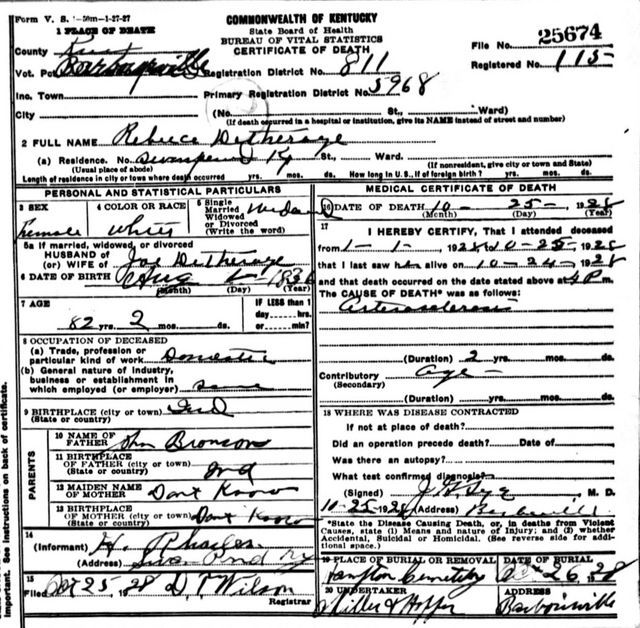 Form V. S. 1-50m-1-27-27
COMMONWEALTH OF KENTUCKY
State Board of Health
BUREAU OF VITAL STATISTICS
CERTIFICATE OF DEATH
1 PLACE OF DEATH
County
File No. 25674
Vot. Pct. Barbourville Registration District No. 811
Registered No. 115
Inc. Town Primary Registration District No. 5968
City (No. St., Ward)
(If death occurred in a hospital or institution, give its NAME instead of street and number)
2 FULL NAME Rebecca Detherage
(a) Residence. No. Ky St., Ward.
(Usual place of abode) (If nonresident, give city or town and State)
Length of residence in city or town where death occurred yrs. mos. ds. How long in U. S., if of foreign birth? yrs. mos. ds.
PERSONAL AND STATISTICAL PARTICULARS
3 SEX
Female
4 COLOR OR RACE
White
5 Single
Married
Widowed
or Divorced
(Write the word)
Widowed
5a If married, widowed, or divorced
HUSBAND OF
(or) WIFE OF Joe Detherage
6 DATE OF BIRTH Aug
(Month) (Day) (Year)
7 AGE
82 yrs. 2 mos. ds.
IF LESS than 1
day------hrs.
or------min?
8 OCCUPATION OF DECEASED
(a) Trade, profession or
particular kind of work Domestic
(b) General nature of industry,
business or establishment in
which employed (or employer) same
9 BIRTHPLACE (city or town) Ind
(State or country)
PARENTS
10 NAME OF
FATHER John Bronson
11 BIRTHPLACE
OF FATHER (city or town)
(State or country) Ind
12 MAIDEN NAME
OF MOTHER Dont Know
13 BIRTHPLACE
OF MOTHER (city or town) Dont Know
(State or country)
14
(Informant) H.
(Address) Ky
15
Filed Oct 25 1928 D. T. Wilson
Registrar
MEDICAL CERTIFICATE OF DEATH
16 DATE OF DEATH 10- 25- 1928
(Month) (Day) (Year)
17
I HEREBY CERTIFY, That I attended deceased
from 1-1- 1928 to 10-25- 1928
that I last saw h alive on 10-24- 1928
and that death occurred on the date stated above at 4 P m.
The CAUSE OF DEATH* was as follows:
Arterosclerosis
(Duration) 2 yrs. mos. ds.
Contributory Age -
(Secondary)
(Duration) yrs. mos. ds.
18 WHERE WAS DISEASE CONTRACTED
If not at place of death?
Did an operation precede death? Date of
Was there an autopsy?
What test confirmed diagnosis?
(Signed) M. D.
10-25- 1928 (Address)
*State the Disease Causing Death, or, in deaths from Violent
Causes, state (1) Means and nature of Injury; and (2) whether
Accidental, Suicidal or Homicidal. (See reverse side for addi-
tional space.)
19 PLACE OF BURIAL OR REMOVAL
Cemetery
DATE OF BURIAL
26, 28
20 UNDERTAKER
Miller & Hopper
ADDRESS
Barbourville
important. See instructions on back of certificate.